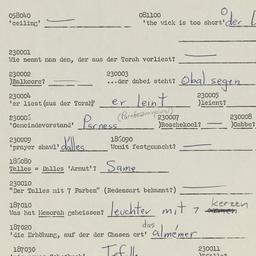 058040 081100
'ceiling' — 'the wick is too short' der
230001
Wie nennt man den, der aus der Torah vorliest? —
230002 230003
Balkore? — ...der dabei steht? Obal segen
230004 230005
'er liest (aus der Torah)' er leint leient?
230006 230007 230008
'Gemeindevorstand' Parness Roschekool? — Gabbe?
230009 186090
'prayer shawl' dalles Womit festgemacht? —
186080
Telles = Dalles 'Armut'? Same
230010
"Der Talles mit 7 Farben" (Redensart bekannt?) —
187010 kerzen
Was hat Menorah geheissen? leuchter mit 7
187020 das
'die Erhöhung, auf der der Chasen ort' almémer
187030 230011